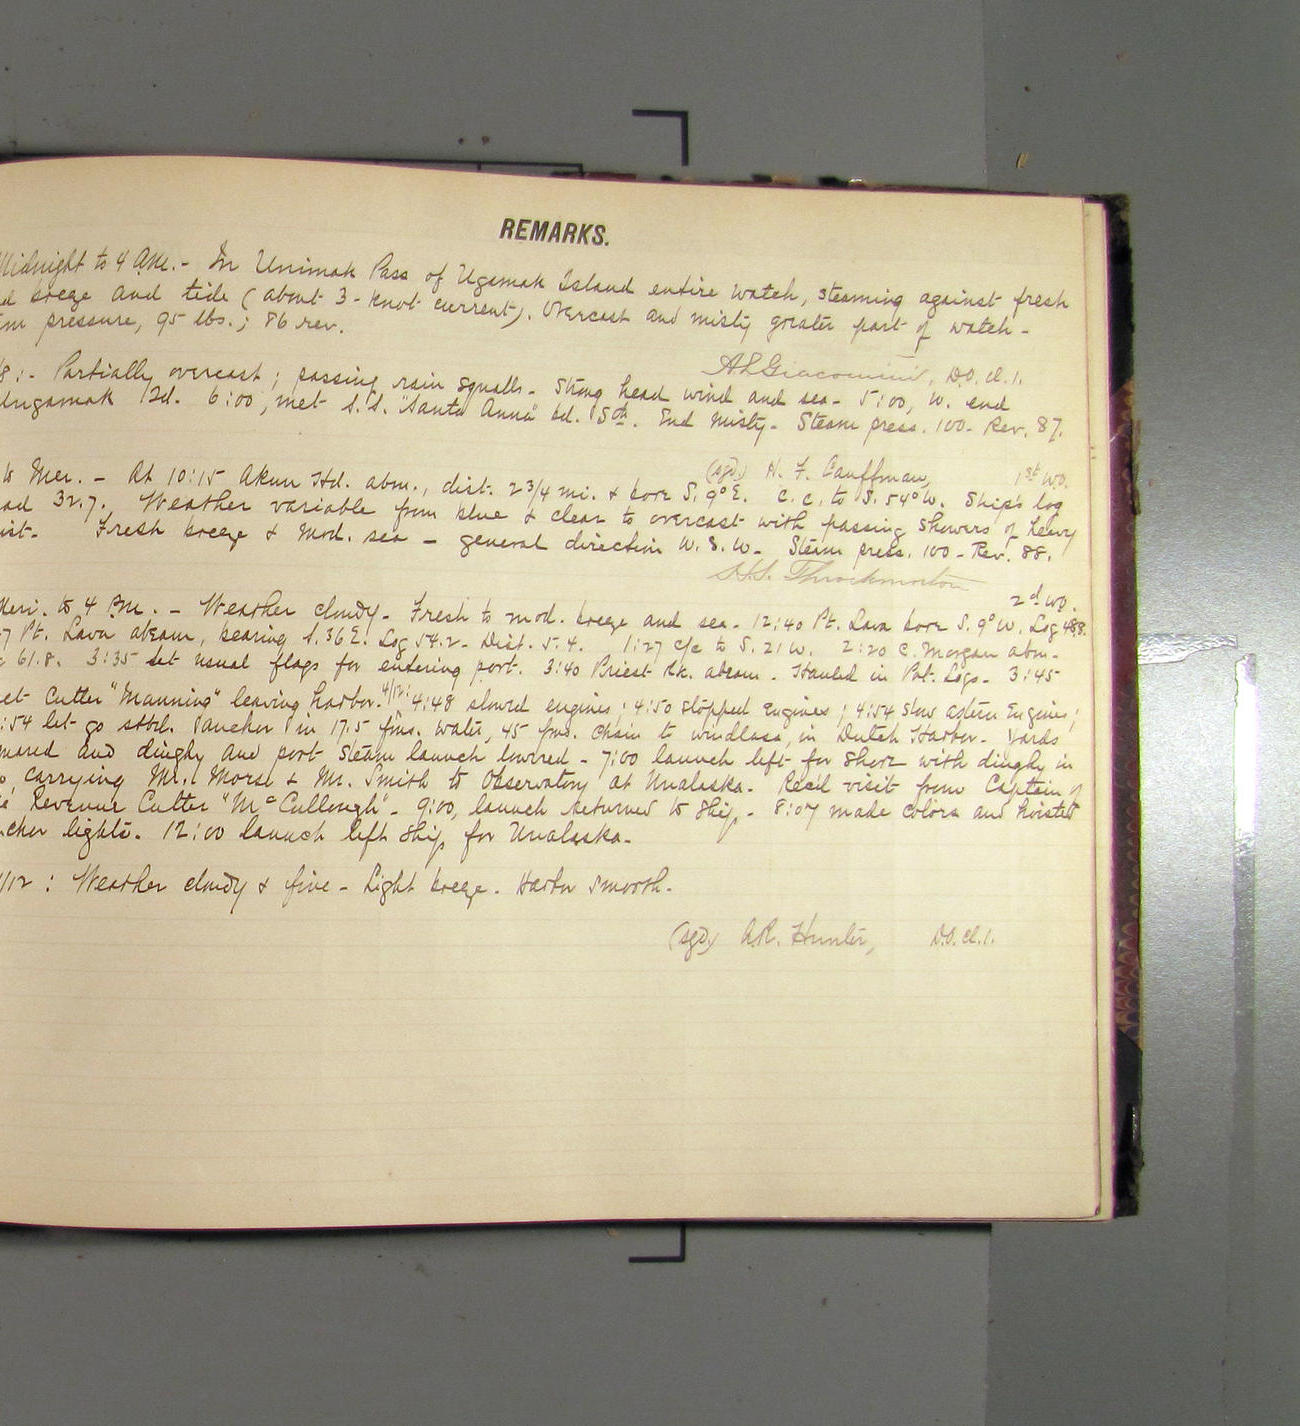 REMARKS.
Midnight to 4 AM. - In Unimak Pass of Ugamak Island entire watch, steaming against fresh
breeze and tide (about 3-knot current). Overcast and misty greater part of watch -
pressure, 95 lbs.; 86 rev.
A L Giacomini, D.O. cl. 1.
8:- Partially overcast; passing rain squalls - Strong head wind and sea - 5:00, W. end
Ungamak Isd. 6:00, met S.S. "Santa Anna" bd. Sod. End misty - Steam press. 100 - Rev. 87.
(sgd) H. F. Cauffman, 1st W.O.
to Mer. - At 10:15 Akun Hd. abm., dist. 2 3/4 mi. & bore S. 9° E. C. c. to S. 54° W. Ship's log
32.7. Weather variable from blue & clear to overcast with passing showers of heavy
Fresh breeze & mod. sea - general direction W. S. W. - Steam press. 100 - Rev. 88.
Throckmorton 2d W.O.
Meri. to 4 P.M. - Weather cloudy - Fresh to mod. breeze and sea - 12:40 Pt. Lava bore S. 9° W. Log 48.8.
Pt. Lava abeam, bearing S. 36 E. Log 54.2 - Dist. 5.4. 1:27 c/c to S. 21 W. 2:20 C. Morgan abm -
61.8. 3:35 Set usual flags for entering port. 3:40 Priest Rk. abeam - Hauled in Pat. Logs - 3:45
Cutter "Manning" leaving harbor. 4/12: 4:48 slowed engines; 4:50 stopped engines; 4:54 slow astern engines;
:54 let go stbd. anchor in 17.5 fms. water, 45 fms. chain to windlass, in Dutch Harbor - Yards
and dinghy and port steam launch lowered - 7:00 launch left for shore with dinghy in
carrying Mr. Morse & Mr. Smith to Observatory at Unalaska - Rec'd visit from Captain of
Revenue Cutter "McCullough" - 9:00, launch returned to ship - 8:07 made colors and hoisted
lights. 12:00 launch left ship for Unalaska -
/12: Weather cloudy & fine - Light breeze. Harbor smooth.
(sgd) A.R. Hunter, D.O. cl. 1.